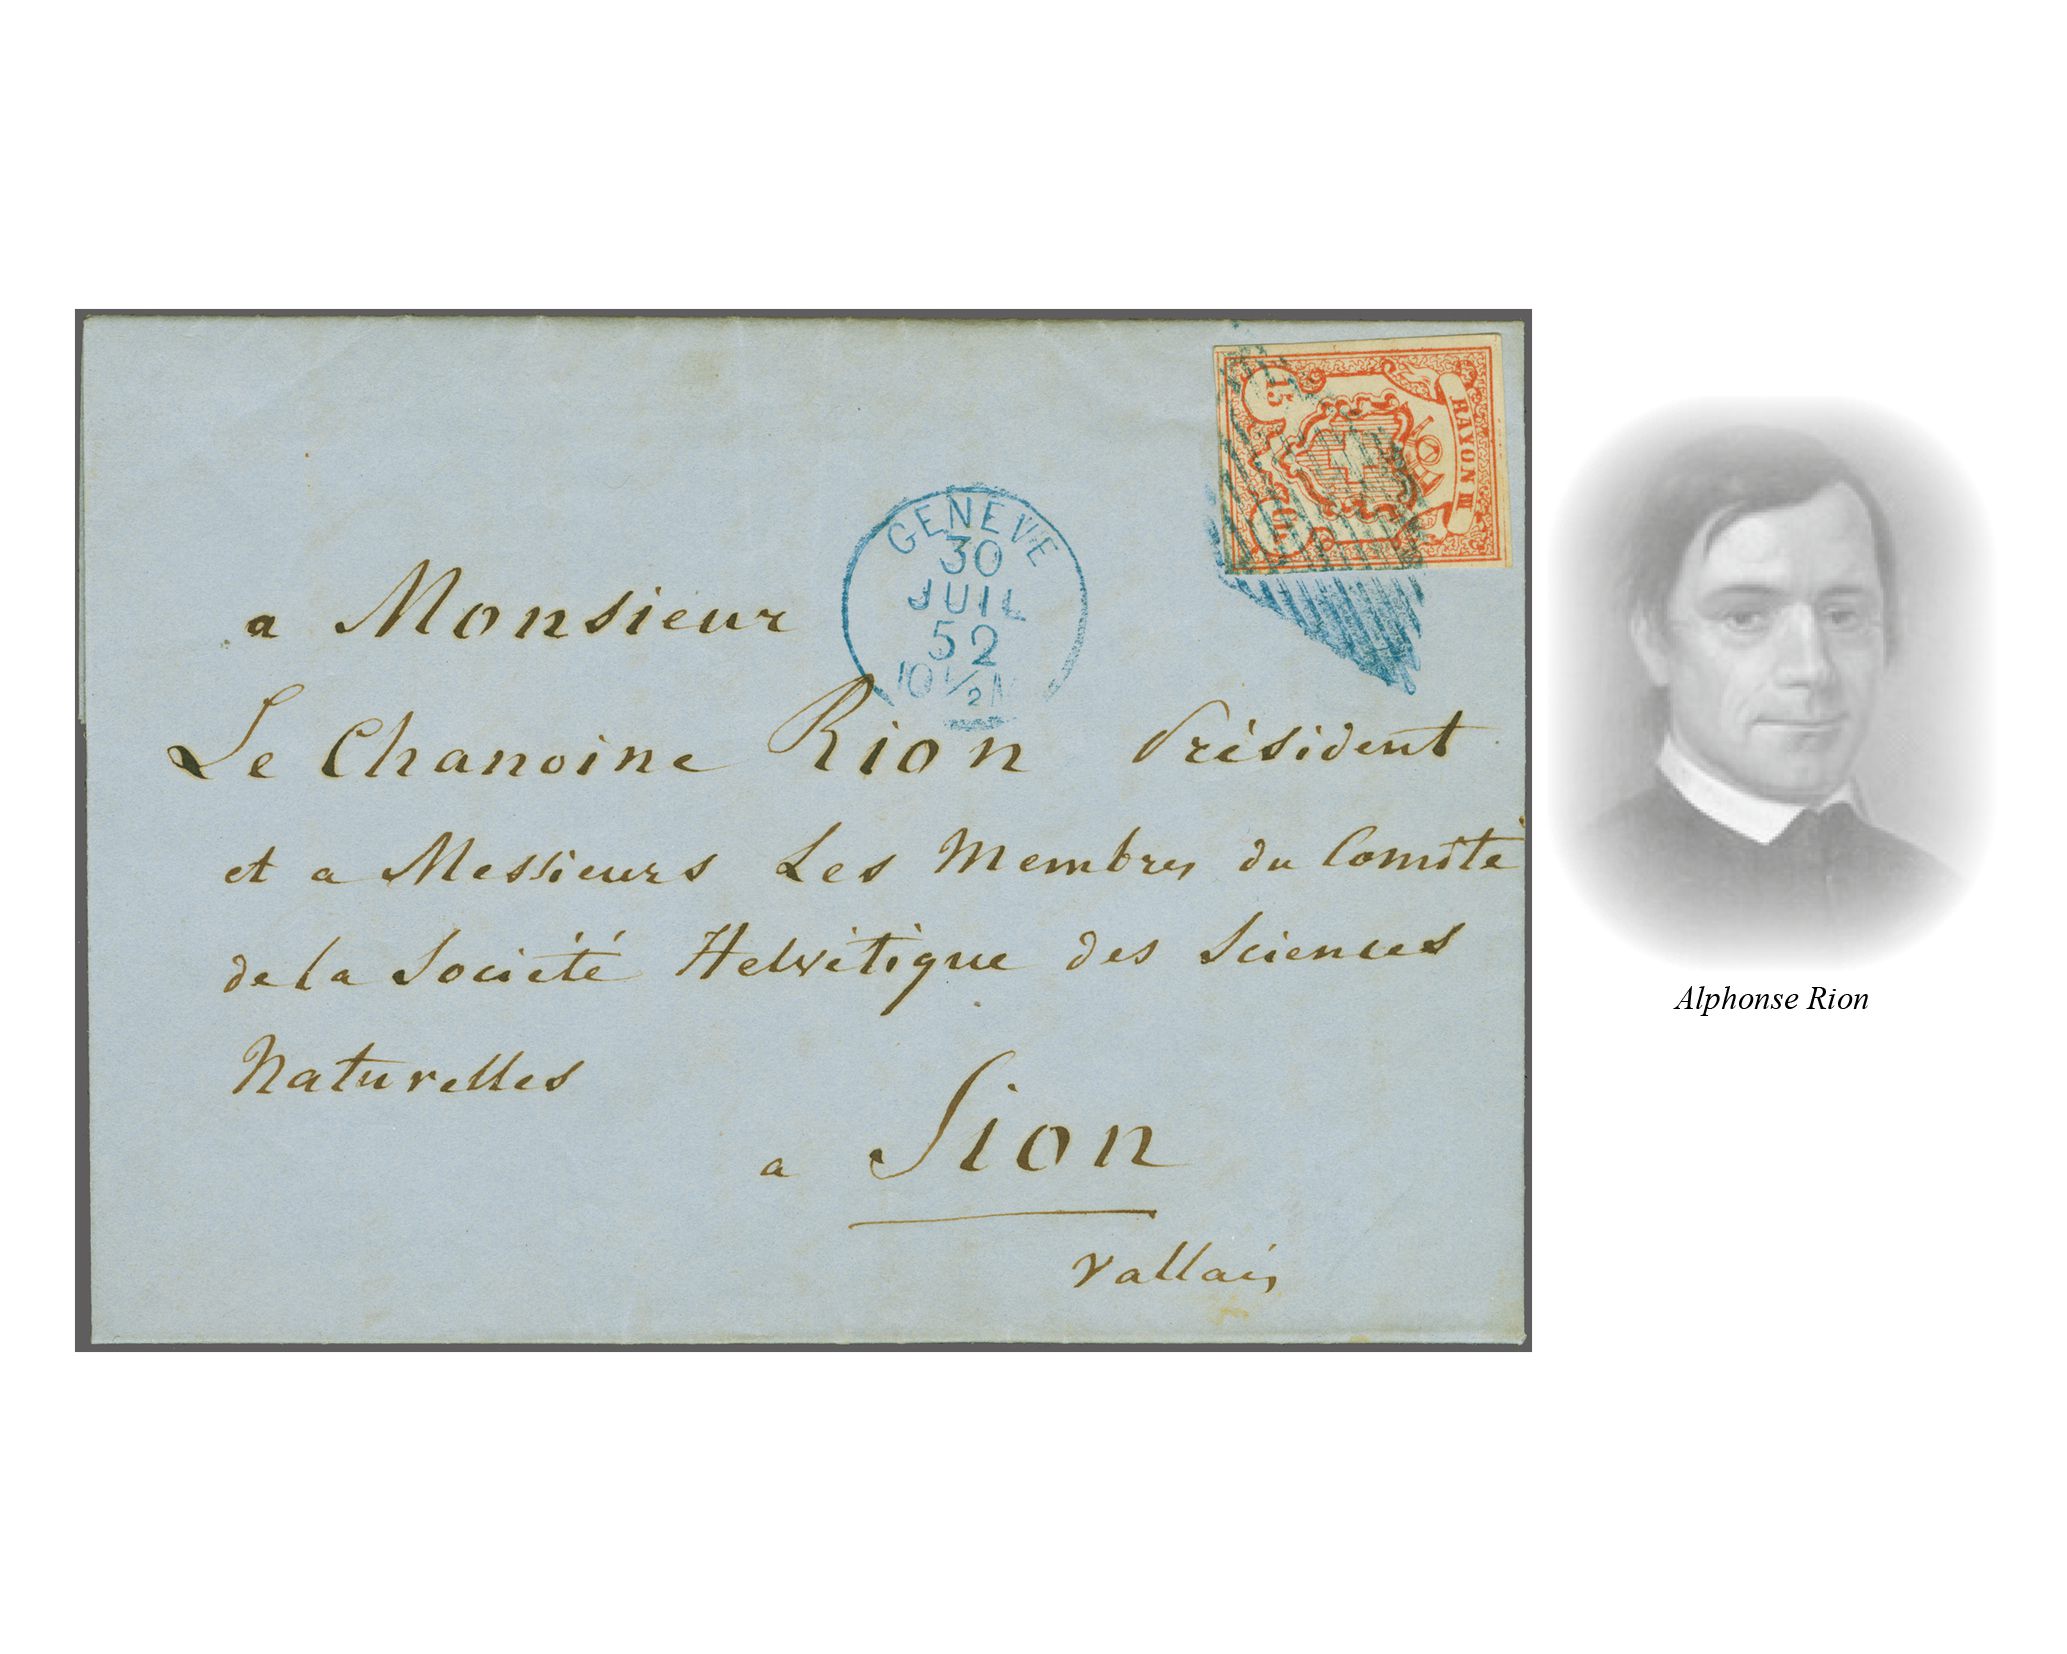 RAYON III
15
Cts.
GENEVE
30
JUIL
52
10 1/2 M
a Monsieur
Le Chanoine Rion Président
et a Messieurs Les Membres du Comité
de la Société Helvétique des Sciences
Naturelles
a Sion
Vallais
Alphonse Rion